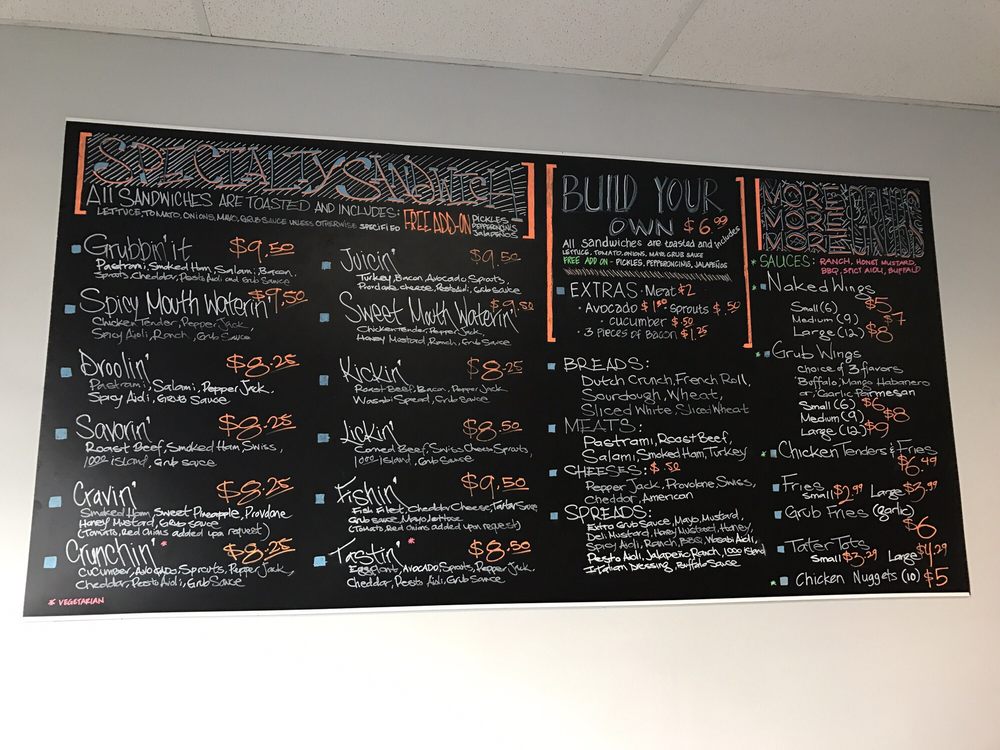 SPECIALTY SANDWICH
All SANDWICHES ARE TOASTED AND INCLUDES:
LETTUCE, TOMATO, ONIONS, MAYO, GRUB SAUCE UNLESS OTHERWISE SPECIFIED
FREE ADD-ON
PICKLES
PEPPERONCINIS
JALAPEÑOS
Grubbin' it $9.50
Pastrami, Smoked Ham, Salami, Bacon,
Sprouts, Cheddar, Pesto Aioli and Grub Sauce
Spicy Mouth Waterin' $9.50
Chicken Tender, Pepper Jack,
Spicy Aioli, Ranch, Grub Sauce
Droolin' $8.25
Pastrami, Salami, Pepper Jack,
Spicy Aioli, Grub Sauce
Savorin' $8.25
Roast Beef, Smoked Ham, Swiss,
1000 island, Grub sauce
Cravin' $8.25
Smoked Ham, Sweet Pineapple, Provolone
Honey Mustard, Grub sauce
(Tomato, Red Onions added upon request)
Crunchin' * $8.25
Cucumber, Avocado, Sprouts, Pepper Jack,
Cheddar, Pesto Aioli, Grub Sauce
* VEGETARIAN
Juicin' $9.50
Turkey, Bacon, Avocado, Sprouts,
Provolone cheese, Pesto Aioli, Grub Sauce
Sweet Mouth Waterin' $9.50
Chicken Tender, Pepper Jack,
Honey Mustard, Ranch, Grub Sauce
Kickin' $8.25
Roast Beef, Bacon, Pepper Jack,
Wasabi Spread, Grub Sauce
Lickin' $8.50
Corned Beef, Swiss Cheese, Sprouts,
1000 island, Grub Sauce
Fishin' $9.50
Fish Filet, Cheddar Cheese, Tartar Sauce,
Grub sauce, Mayo, lettuce
(Tomato, Red Onions added upon request)
Tastin' * $8.50
Eggplant, Avocado, Sprouts, Pepper Jack,
Cheddar, Pesto Aioli, Grub Sauce
BUILD YOUR
OWN $6.99
All Sandwiches are toasted and includes
LETTUCE, TOMATO, ONIONS, MAYO, GRUB SAUCE
FREE ADD ON - PICKLES, PEPPERONCINIS, JALAPEÑOS
EXTRAS: Meat $2
Avocado $1.00 Sprouts $.50
Cucumber $.50
3 Pieces of Bacon $1.25
BREADS:
Dutch Crunch, French Roll,
Sourdough, Wheat,
Sliced White, Sliced Wheat
MEATS:
Pastrami, Roast Beef,
Salami, Smoked Ham, Turkey
CHEESES: $.50
Pepper Jack, Provolone, Swiss,
Cheddar, American
SPREADS:
Extra Grub Sauce, Mayo, Mustard,
Deli Mustard, Honey Mustard, Honey,
Spicy Aioli, Ranch, BBQ, Wasabi Aioli,
Pesto Aioli, Jalapeño Ranch, 1000 island
Italian Dressing, Buffalo Sauce
MORE
MORE
MORE
MORE GRUB
* SAUCES: RANCH, HONEY MUSTARD,
BBQ, SPICY AIOLI, BUFFALO
* Naked Wings
Small (6) $5
Medium (9) $7
Large (12) $8
* Grub Wings
choice of 3 flavors
Buffalo, Mango Habanero
or, Garlic Parmesan
Small (6) $6
Medium (9) $8
Large (12) $9
* Chicken Tenders & Fries
$6.49
Fries
Small $2.99 Large $3.99
Grub Fries (garlic)
$6
Tater Tots
Small $3.29 Large $4.29
* Chicken Nuggets (10) $5